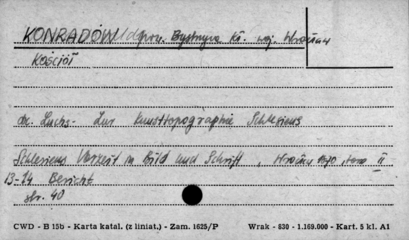 KONRADÓW /dpow. Bystrzyca Kł. woj. Wrocław
Kościół
dr. Luchs - Zur Kunsttopographie Schlesiens
Schlesiens Vorzeit in Bild und Schrift, Wrocław 1870, tom II
13-14 Bericht
str. 40
CWD - B 15b - Karta katal. (z liniat.) - Zam. 1625/P Wrak - 830 - 1.169.000 - Kart. 5 kl. A1